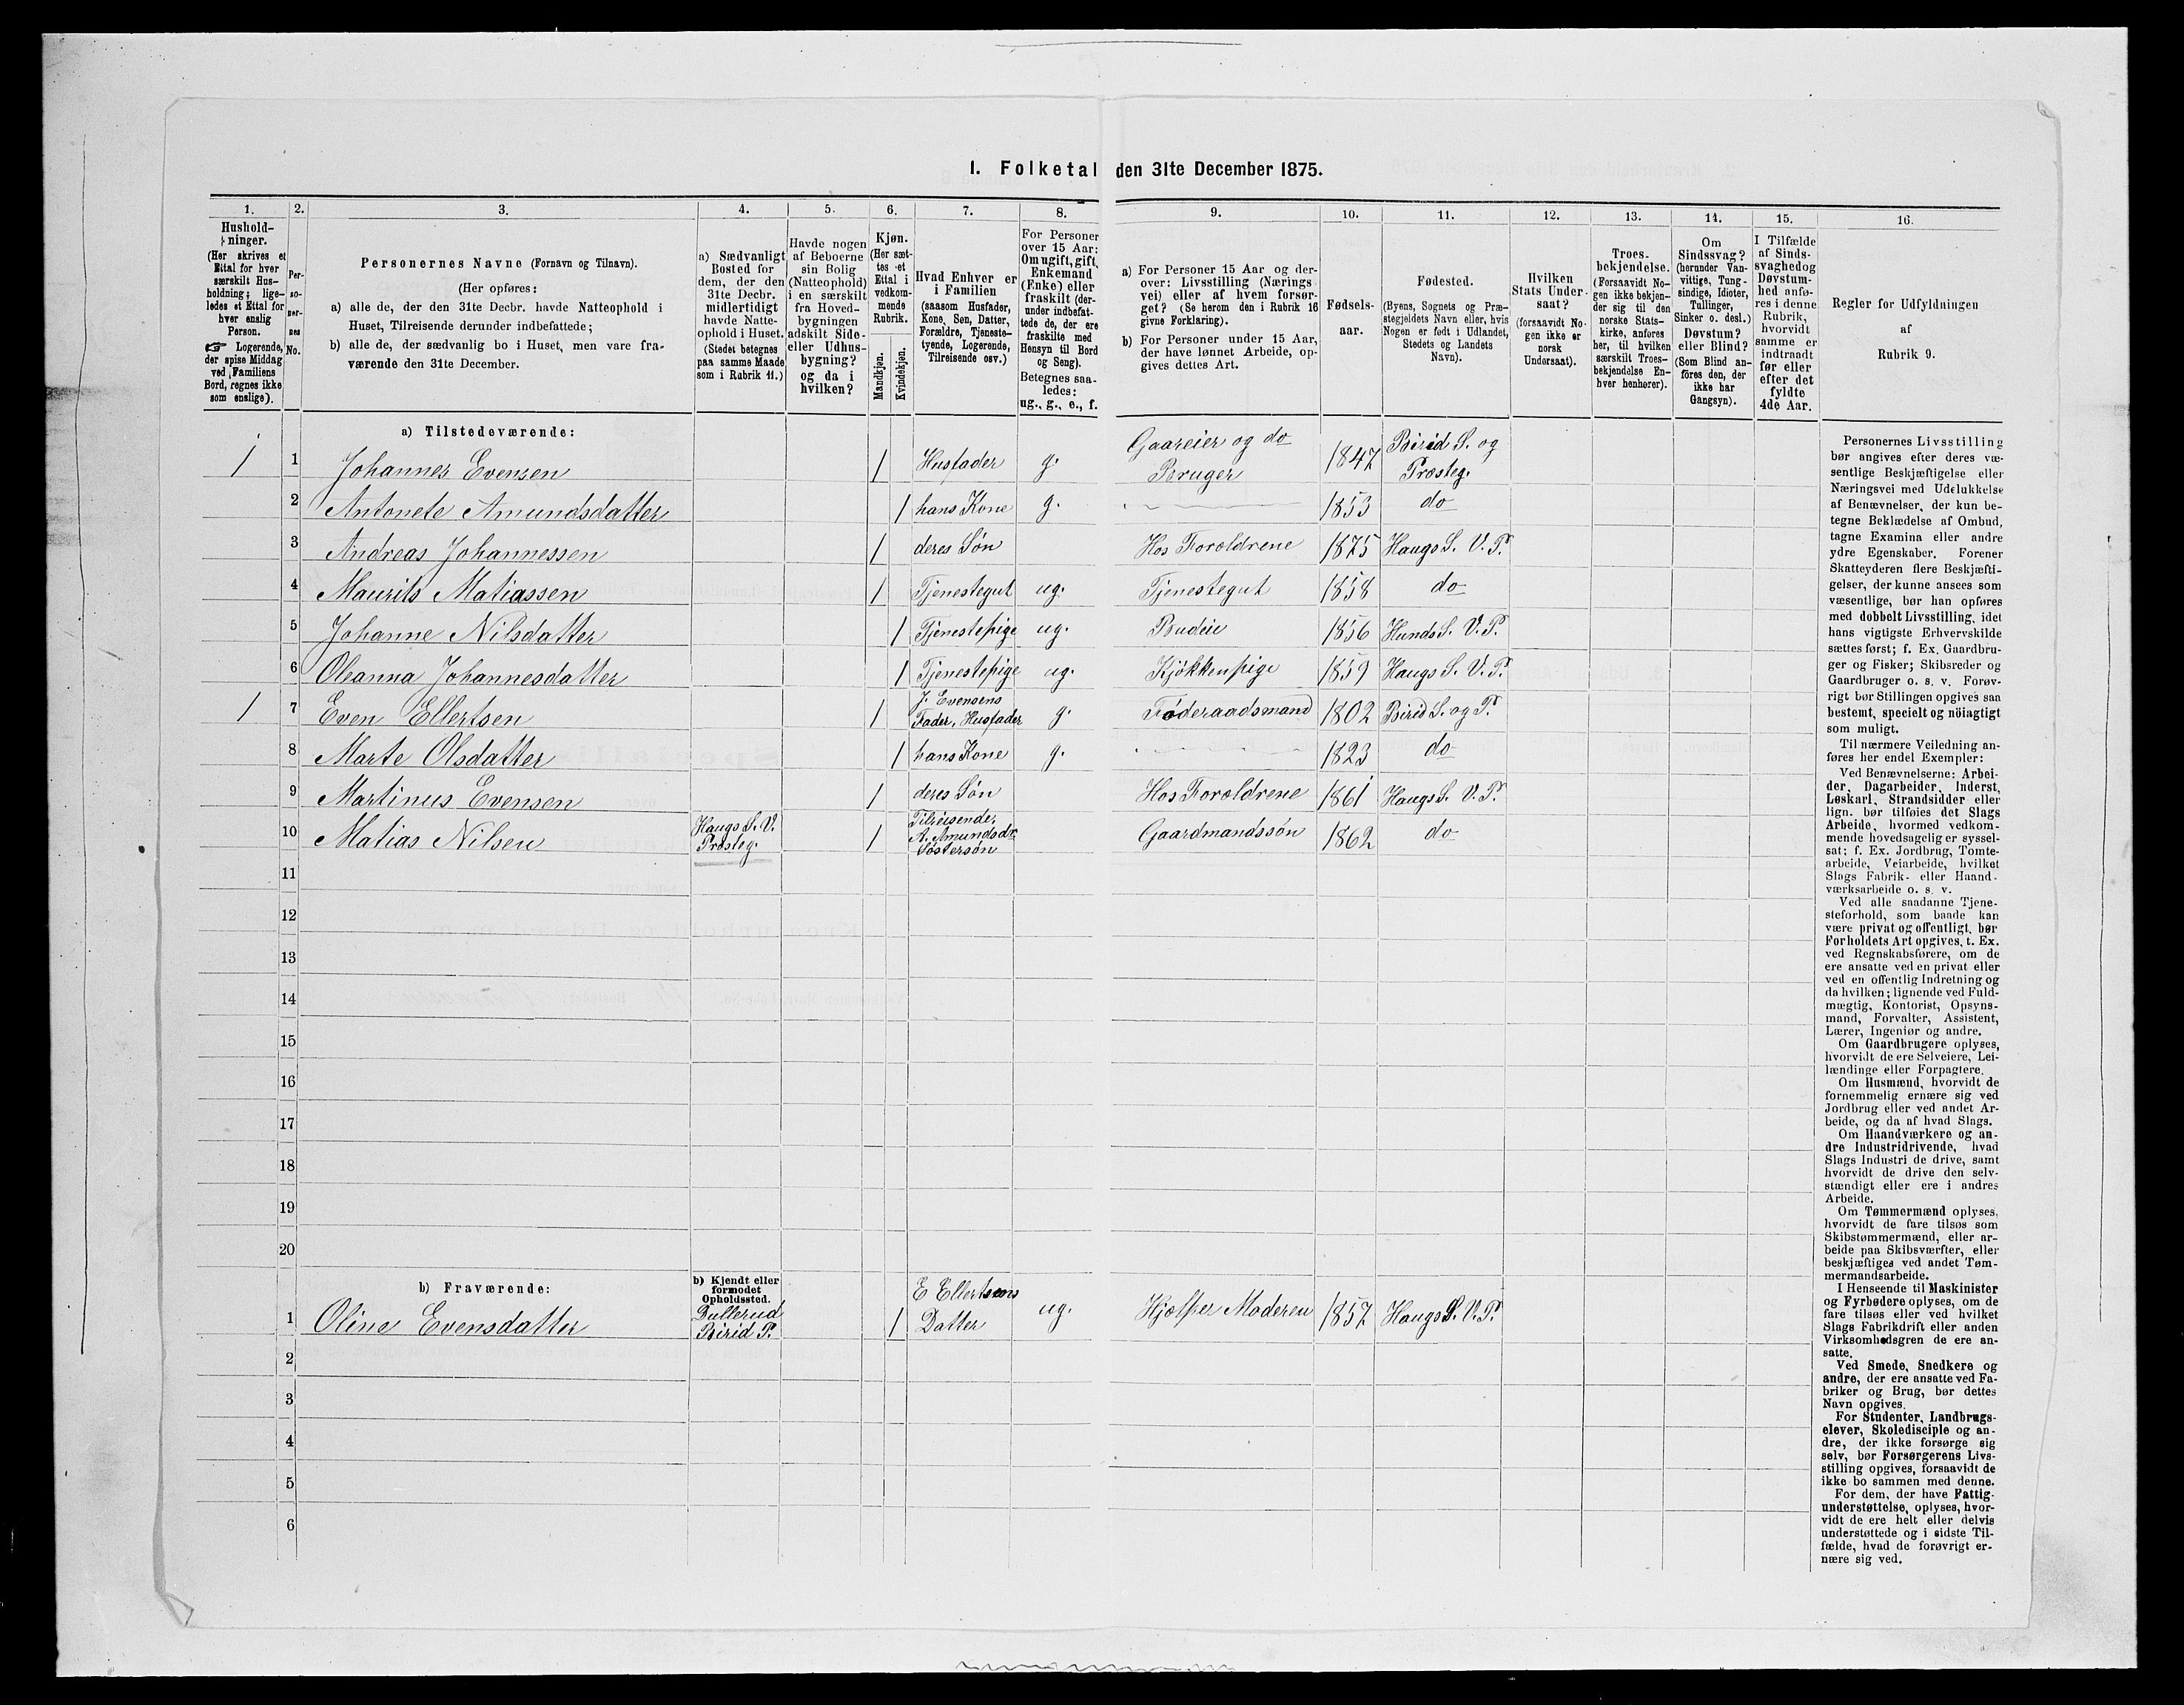 I. Folketal den 31te December 1875.
1.
2.
3.
4.
5.
6.
7.
8.
9.
10.
11.
12.
13.
14.
15.
16.
Hushold-
ninger.
(Her skrives et
Ettal for hver
særskilt Hus-
holdning; lige-
ledes et Ettal for
hver enslig
Person.
☞ Logerende,
der spise Middag
ved Familiens
Bord, regnes ikke
som enslige).
Per-
so-
ner-
nes
No.
Personernes Navne (Fornavn og Tilnavn).
(Her opføres:
a) alle de, der den 31te Decbr. havde Natteophold i
Huset, Tilreisende derunder indbefattede;
b) alle de, der sædvanlig bo i Huset, men vare fra-
værende den 31te December.
a) Sædvanligt
Bosted for
dem, der den
31te Decbr.
midlertidigt
havde Natte-
ophold i Huset.
(Stedet betegnes
paa samme Maade
som i Rubrik 11.)
Havde nogen
af Beboerne
sin Bolig
(Natteophold)
i en særskilt
fra Hoved-
bygningen
adskilt Side-
eller Udhus-
bygning?
og da i
hvilken?
Kjøn.
(Her sæt-
tes et
Ettal i
vedkom-
mende
Rubrik.
Mandkjøn.
Kvindekjøn.
Hvad Enhver er
i Familien
(saasom Husfader,
Kone, Søn, Datter,
Forældre, Tjeneste-
tyende, Logerende,
Tilreisende osv.)
For Personer
over 15 Aar:
Om ugift, gift,
Enkemand
(Enke) eller
fraskilt (der-
under indbefat-
tede de, der ere
fraskilte med
Hensyn til Bord
og Seng).
Betegnes saa-
ledes:
ug., g., e., f.
a) For Personer 15 Aar og der-
over: Livsstilling (Nærings
vei) eller af hvem forsør-
get? (Se herom den i Rubrik 16
givne Forklaring).
b) For Personer under 15 Aar,
der have lønnet Arbeide, op-
gives dettes Art.
Fødsels-
aar.
Fødested.
(Byens, Sognets og Præ-
stegjeldets Navn eller, hvis
Nogen er født i Udlandet,
Stedets og Landets
Navn).
Hvilken
Stats Under-
saat?
(forsaavidt No-
gen ikke er
norsk
Undersaat).
Troes-
bekjendelse.
(Forsaavidt No-
gen ikke bekjen-
der sig til den
norske Stats-
kirke, anføres
her, til hvilken
særskilt Troes-
bekjendelse En-
hver henhører).
Om
Sindssvag?
(herunder Van-
vittige, Tung-
sindige, Idioter,
Tullinger,
Sinker o. desl.)
Døvstum?
eller Blind?
(Som Blind an-
føres den, der
ikke har
Gangsyn).
I Tilfælde
af Sinds-
svaghed og
Døvstum-
hed anfø-
res i denne
Rubrik,
hvorvidt
samme er
indtraadt
før eller
efter det
fyldte
4de Aar.
Regler for Udfyldningen
af
Rubrik 9.
a) Tilstedeværende:
1 1 Johannes Evensen 1 Husfader g. Gaareier og do Bruger 1847 Birid S. og Prosteg.
2 Antonete Amundsdatter 1 hans Kone g. 1853 do
3 Andreas Johannessen 1 deres Søn Hos Foroldrene 1875 Haugs S. V. P.
4 Maurits Matiassen 1 Tjenestegut ug. Tjenestegut 1858 do
5 Johanne Nilsdatter 1 Tjenestepige ug. Budeie 1856 Hunds S. V. P.
6 Oleanna Johannesdatter 1 Tjenestepige ug. Kjøkkenpige 1859 Haugs S. V. P.
1 7 Even Ellertsen 1 J. Evensens Fader, Husfader g. Føderaadsmand 1802 Birid S. og P.
8 Marte Olsdatter 1 hans Kone g. 1823 do
9 Martinus Evensen 1 deres Søn Hos Foroldrene 1861 Haugs S. V. P.
10 Matias Nilsen Haugs S. V. Prosteg. 1 Tilreisende, A. Amundsdr Søstersøn Gaardmandssøn 1862 do
11
12
13
14
15
16
17
18
19
20
b) Fraværende:
b) Kjendt eller
formodet
Opholdssted.
1 Oline Evensdatter Dullerud Birid P. 1 E Ellertsens Datter ug. Hjælper Moderen 1857 Haugs S. V. P.
2
3
4
5
6
Personernes Livsstilling
bør angives efter deres væ-
sentlige Beskjæftigelse eller
Næringsvei med Udelukkelse
af Benævnelser, der kun be-
tegne Beklædelse af Ombud,
tagne Examina eller andre
ydre Egenskaber. Forener
Skatteyderen flere Beskjæfti-
gelser, der kunne ansees som
væsentlige, bør han opføres
med dobbelt Livsstilling, idet
hans vigtigste Erhvervskilde
sættes først; f. Ex. Gaardbru-
ger og Fisker; Skibsreder og
Gaardbruger o. s. v. Forøv-
rigt bør Stillingen opgives saa
bestemt, specielt og nöiagtigt
som muligt.
Til nærmere Veiledning an-
føres her endel Exempler:
Ved Benævnelserne: Arbei-
der, Dagarbeider, Inderst,
Løskarl, Strandsidder eller
lign. bør tilføies det Slags
Arbeide, hvormed vedkom-
mende hovedsagelig er syssel-
sat; f. Ex. Jordbrug, Tomte-
arbeide, Veiarbeide, hvilket
Slags Fabrik- eller Haand-
værksarbeide o. s. v.
Ved alle saadanne Tjene-
steforhold, som baade kan
være privat og offentligt, bør
Forholdets Art opgives, t. Ex.
ved Regnskabsførere, om de
ere ansatte ved en privat eller
ved en offentlig Indretning og
da hvilken; lignende ved Fuld-
mægtig, Kontorist, Opsyns-
mand, Forvalter, Assistent,
Lærer, Ingeniør og andre.
Om Gaardbrugere oplyses,
hvorvidt de ere Selveiere, Lei-
lændinge eller Forpagtere.
Om Husmænd, hvorvidt de
fornemmelig ernære sig ved
Jordbrug eller ved andet Ar-
beide, og da af hvad Slags.
Om Haandværkere og an-
dre Industridrivende, hvad
Slags Industri de drive, samt
hvorvidt de drive den selv-
stændigt eller ere i andres
Arbeide.
Om Tømmermænd oplyses,
hvorvidt de fare tilsøs som
Skibstømmermænd, eller ar-
beide paa Skibsværfter, eller
beskjæftiges ved andet Tøm-
mermandsarbeide.
I Henseende til Maskinister
og Fyrbødere oplyses, om de
fare tilsøs eller ved hvilket
Slags Fabrikdrift eller anden
Virksomhedsgren de ere an-
satte.
Ved Smede, Snedkere og
andre, der ere ansatte ved Fa-
briker og Brug, bør dettes
Navn opgives.
For Studenter, Landbrugs-
elever, Skoledisciple og an-
dre, der ikke forsørge sig
selv, bør Forsørgerens Livs-
stilling opgives, forsaavidt de
ikke bo sammen med denne.
For dem, der have Fattig-
understøttelse, oplyses, hvor-
vidt de ere helt eller delvis
understøttede og i sidste Til-
fælde, hvad de forøvrigt er-
nære sig ved.